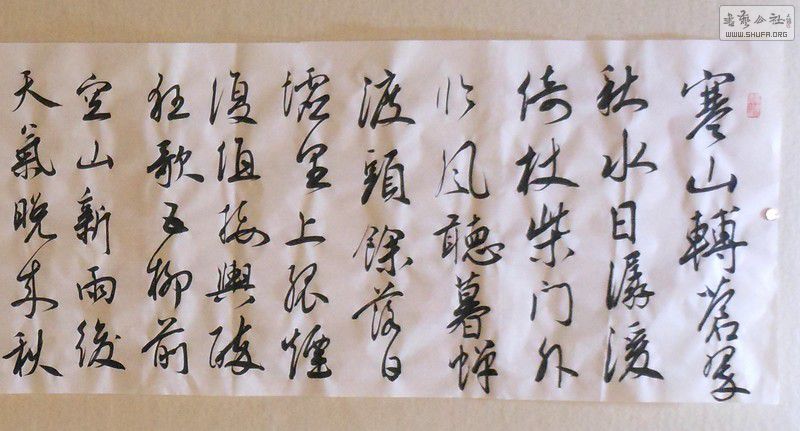 寒山轉蒼翠
秋水日潺湲
倚杖柴门外
临风聽暮蝉
渡頭餘落日
墟里上孤煙
復值接輿醉
狂歌五柳前
空山新雨後
天氣晚来秋
书藝公社
WWW.SHUFA.ORG